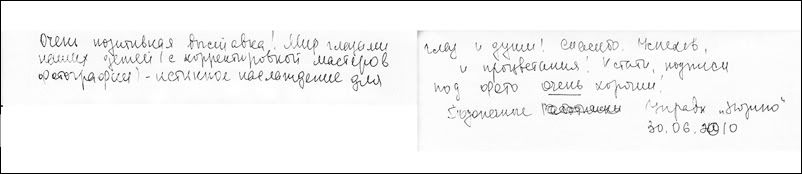 Очень позитивная выставка! Мир глазами
наших детей (с корректировкой мастеров
фотографии) - истинное наслаждение для
глаз и души! Спасибо. Успехов,
и процветания! Кстати, подписи
под фото очень хороши!
Управа "Зюзино"
30.06.2010